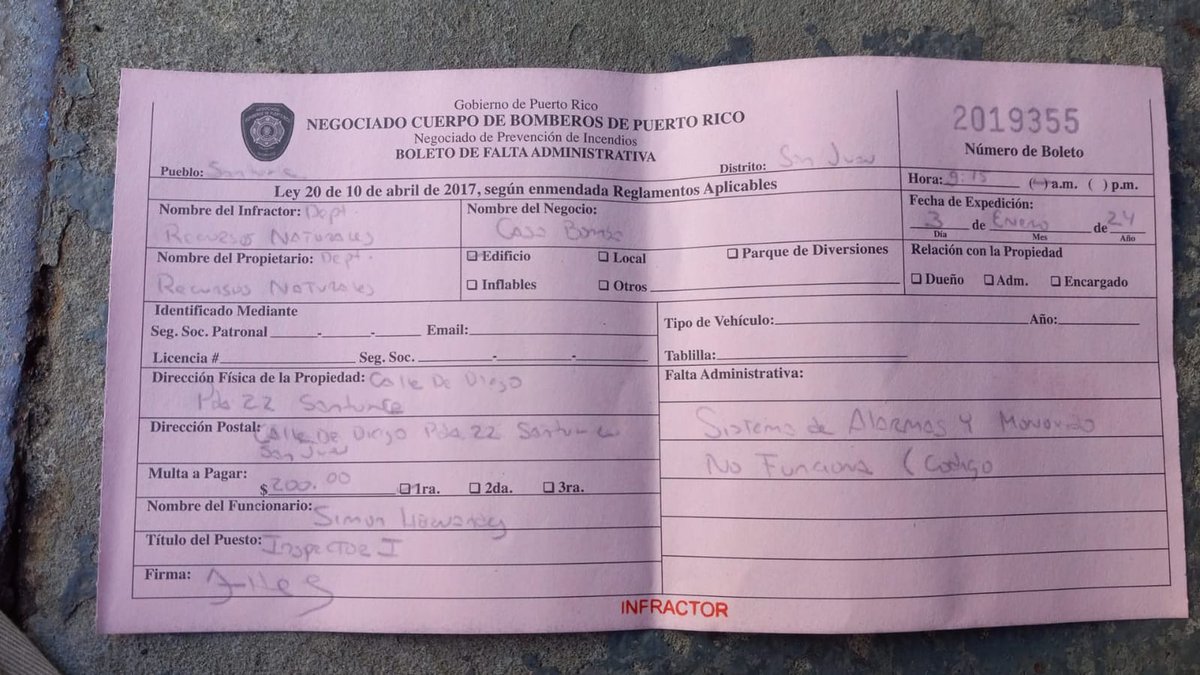 Gobierno de Puerto Rico
NEGOCIADO CUERPO DE BOMBEROS DE PUERTO RICO
Negociado de Prevención de Incendios
BOLETO DE FALTA ADMINISTRATIVA
2019355
Número de Boleto
Pueblo: Santurce
Distrito: San Juan
Ley 20 de 10 de abril de 2017, según enmendada Reglamentos Aplicables
Hora: 9:15 ( ) a.m. ( ) p.m.
Fecha de Expedición:
3 de Enero de 24
Día Mes Año
Nombre del Infractor: Dept.
Recursos Naturales
Nombre del Negocio:
Casa Bomba
Nombre del Propietario: Dept.
Recursos Naturales
Edificio Local Parque de Diversiones
Inflables Otros
Relación con la Propiedad
Dueño Adm. Encargado
Identificado Mediante
Seg. Soc. Patronal - - Email:
Licencia # Seg. Soc. - -
Tipo de Vehículo: Año:
Tablilla:
Dirección Física de la Propiedad: Calle De Diego
Pda 22 Santurce
Dirección Postal: Calle De Diego Pda. 22 Santurce
San Juan
Multa a Pagar:
$200.00 1ra. 2da. 3ra.
Nombre del Funcionario: Simon Hernandez
Título del Puesto: Inspector I
Firma:
Falta Administrativa:
Sistema de Alarmas y
No Funciona (Codigo
INFRACTOR